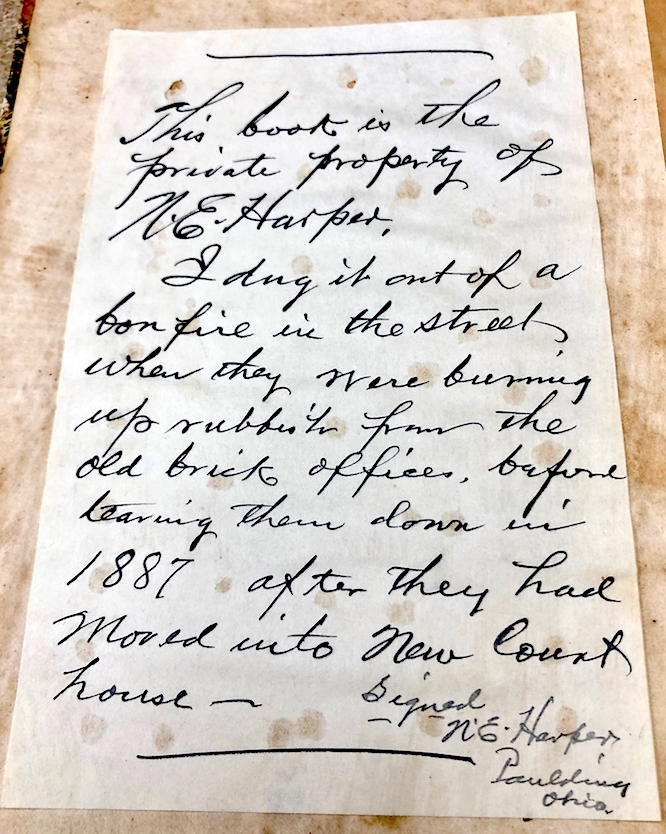 This book is the
private property of
N.E. Harper.
I dug it out of a
bon fire in the street
when they were burning
up rubbish from the
old brick offices, before
tearing them down in
1887 after they had
Moved into New Court
house —
Signed
N.E. Harper
Paulding
Ohio.